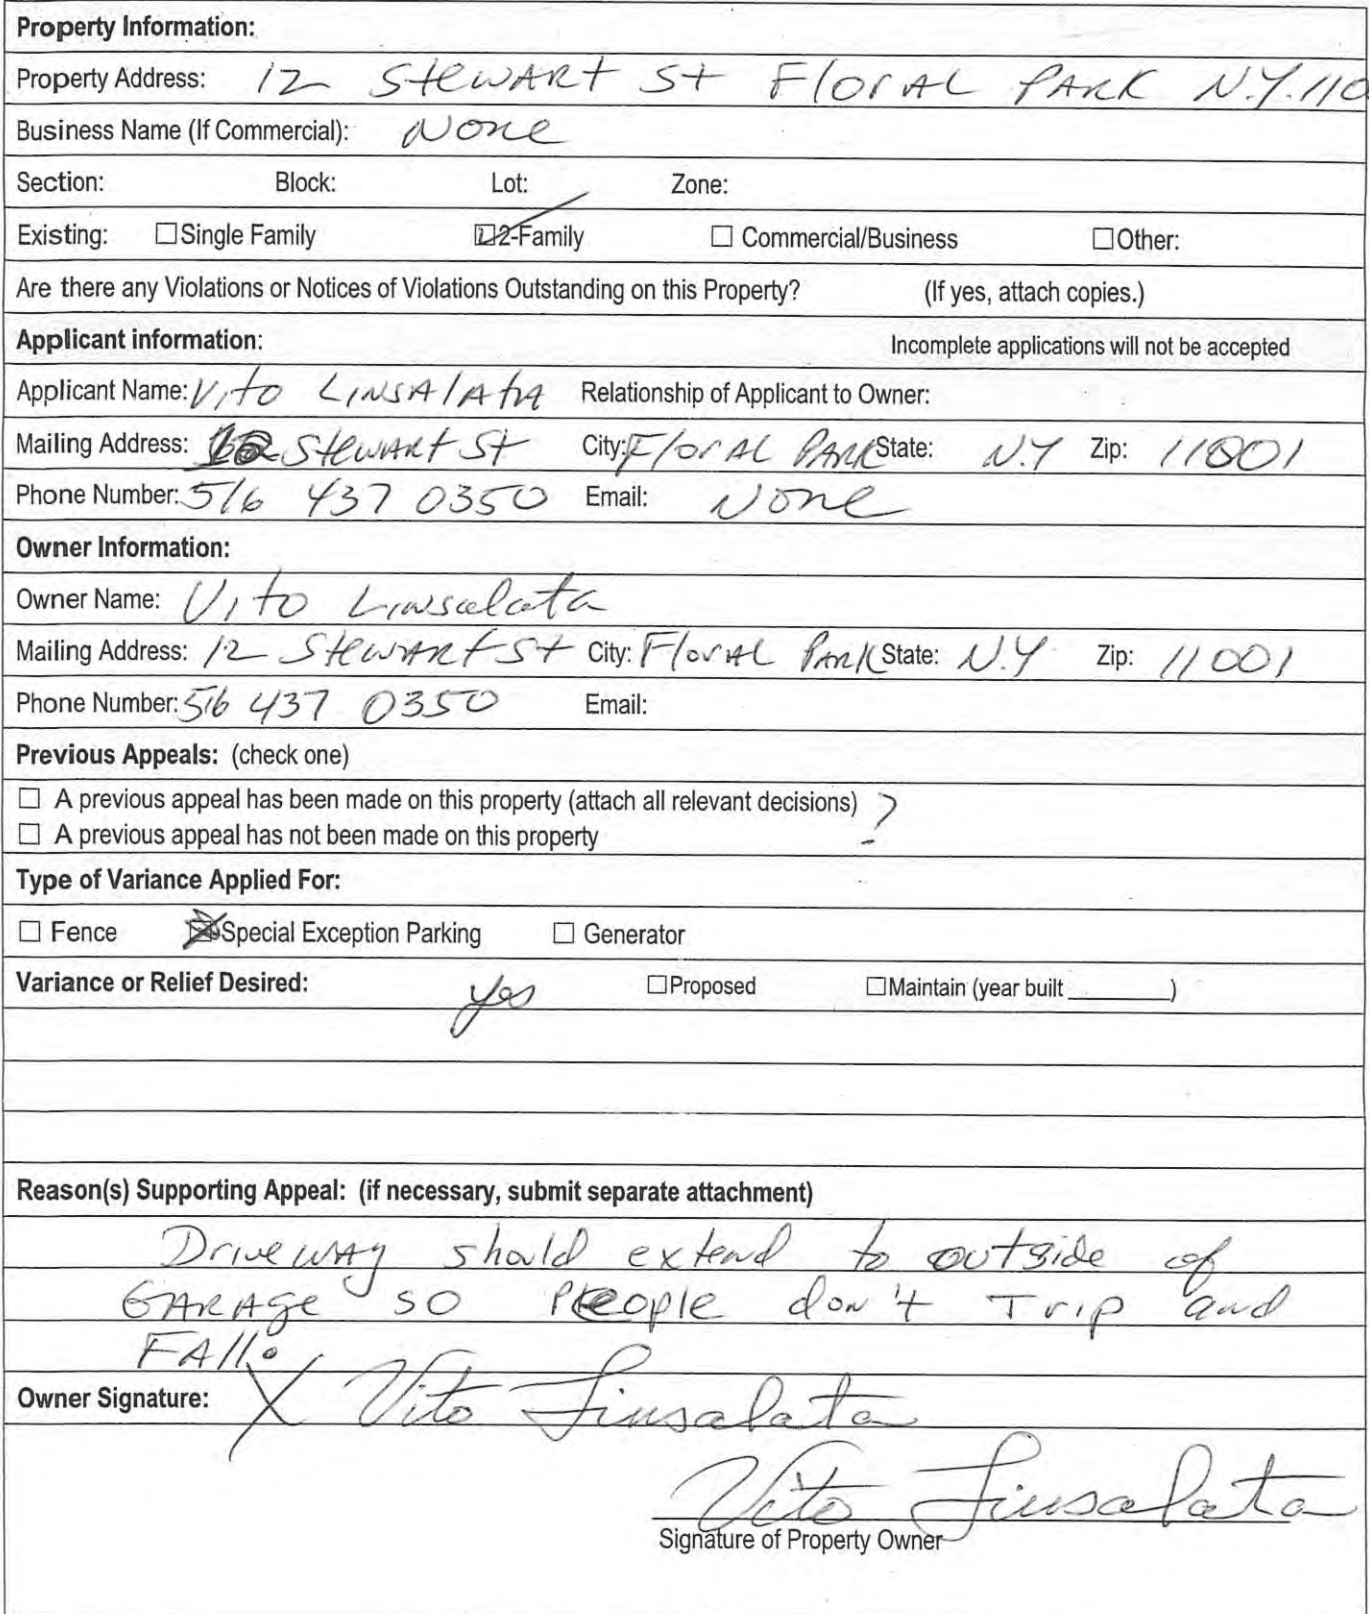 Property Information:
Property Address: 12 Stewart St Floral Park N.Y. 110
Business Name (If Commercial): None
Section: Block: Lot: Zone:
Existing: ☐Single Family ☑2-Family ☐ Commercial/Business ☐Other:
Are there any Violations or Notices of Violations Outstanding on this Property? (If yes, attach copies.)
Applicant information: Incomplete applications will not be accepted
Applicant Name: Vito Linsalata Relationship of Applicant to Owner:
Mailing Address: 12 Stewart St City: Floral Park State: N.Y Zip: 11001
Phone Number: 516 437 0350 Email: None
Owner Information:
Owner Name: Vito Linsalata
Mailing Address: 12 Stewart St City: Floral Park State: N.Y Zip: 11001
Phone Number: 516 437 0350 Email:
Previous Appeals: (check one)
☐ A previous appeal has been made on this property (attach all relevant decisions) ?
☐ A previous appeal has not been made on this property
Type of Variance Applied For:
☐ Fence ☒Special Exception Parking ☐ Generator
Variance or Relief Desired: yes ☐Proposed ☐Maintain (year built ________)
Reason(s) Supporting Appeal: (if necessary, submit separate attachment)
Driveway should extend to outside of
GARAGe so People don't Trip and
FAll.
Owner Signature: X Vito Linsalata
Vito Linsalata
Signature of Property Owner